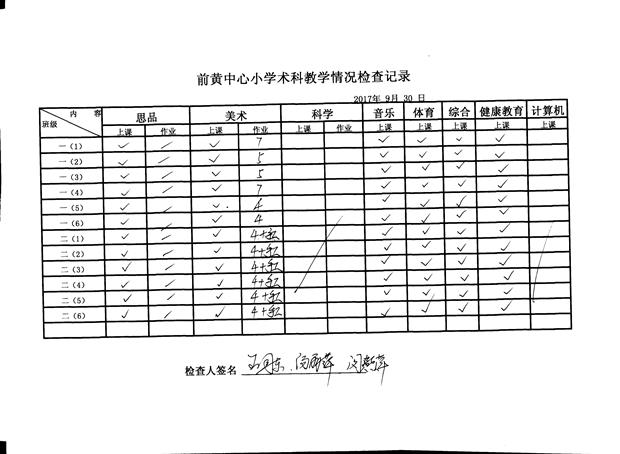 前黄中心小学术科教学情况检查记录
2017年 9月 30 日
内 容 思品 美术 科学 音乐 体育 综合 健康教育 计算机
班级 上课 作业 上课 作业 上课 作业 上课 上课 上课 上课 上课
一（1） ✓ ／ ✓ 7 ✓ ✓ ✓ ✓
一（2） ✓ ／ ✓ 5 ✓ ✓ ✓ ✓
一（3） ✓ ／ ✓ 5 ✓ ✓ ✓ ✓
一（4） ✓ ／ ✓ 7 ✓ ✓ ✓ ✓
一（5） ✓ ／ ✓ 4 ✓ ✓ ✓ ✓
一（6） ✓ ／ ✓ 4 ✓ ✓ ✓ ✓
二（1） ✓ ／ ✓ 4+ ✓ ✓ ✓ ✓
二（2） ✓ ／ ✓ 4+ ✓ ✓ ✓ ✓
二（3） ✓ ／ ✓ 4+ ✓ ✓ ✓ ✓
二（4） ✓ ／ ✓ 4+ ✓ ✓ ✓ ✓
二（5） ✓ ／ ✓ 4+ ✓ ✓ ✓ ✓
二（6） ✓ ／ ✓ 4+ ✓ ✓ ✓ ✓
检查人签名